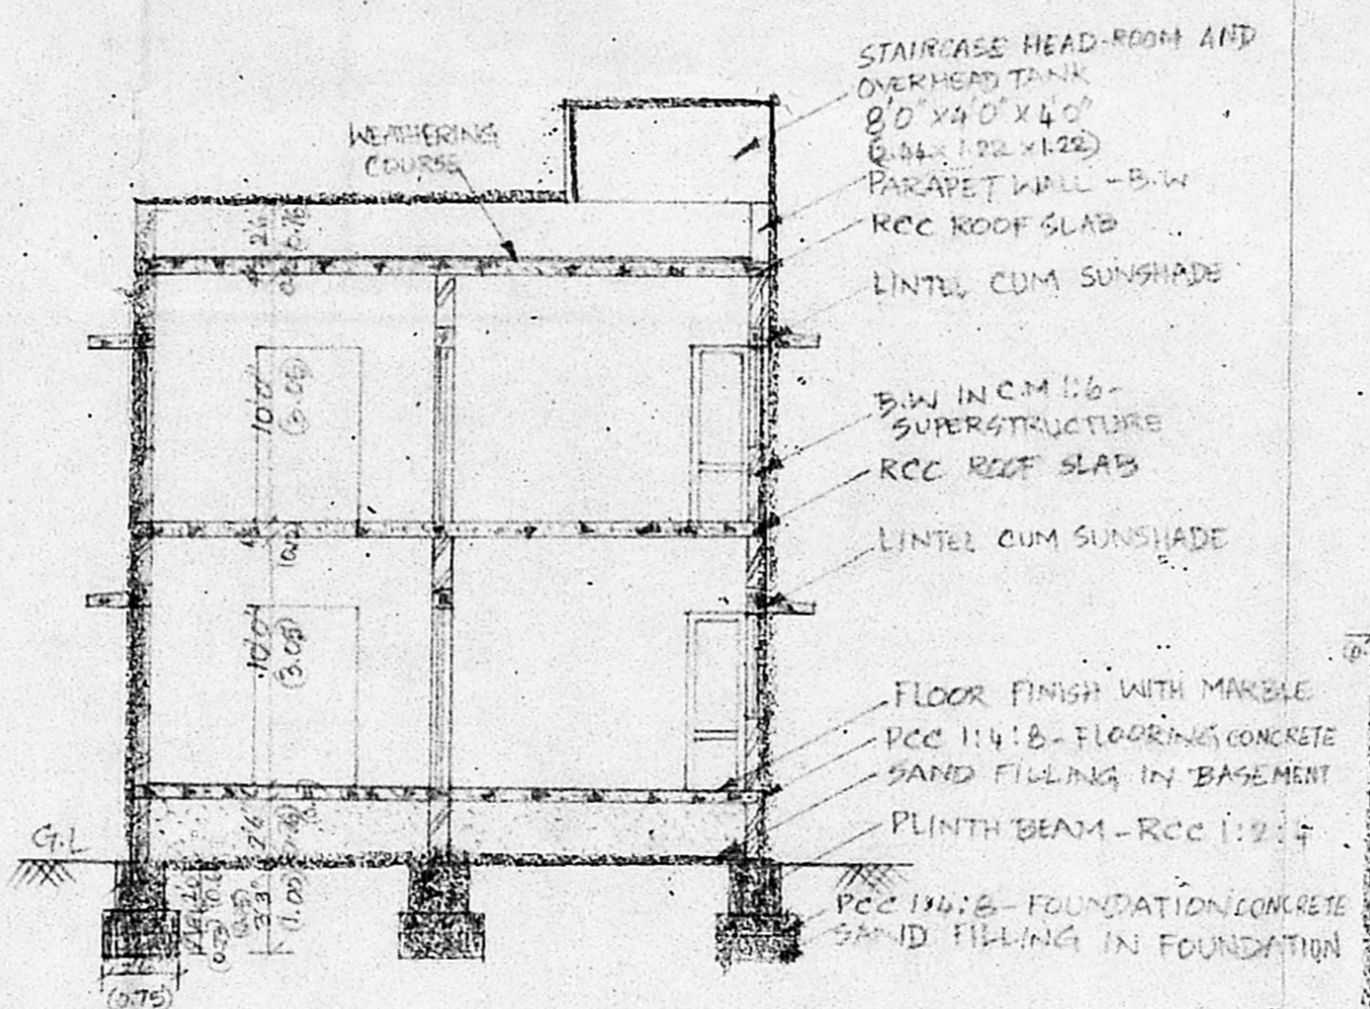 STAIRCASE HEAD-ROOM AND
OVERHEAD TANK
8'0" X 4'0" X 4'0"
(2.44 X 1.22 X 1.22)
PARAPET WALL - B.W
RCC ROOF SLAB
LINTEL CUM SUNSHADE
B.W IN C.M 1:6-
SUPERSTRUCTURE
RCC ROOF SLAB
LINTEL CUM SUNSHADE
FLOOR FINISH WITH MARBLE
PCC 1:4:8-FLOORING CONCRETE
SAND FILLING IN BASEMENT
PLINTH BEAM-RCC 1:2:4
PCC 1:4:8-FOUNDATION CONCRETE
SAND FILLING IN FOUNDATION
WEATHERING
COURSE
2'6"
0.76
10'0"
(3.05)
10'0"
(3.05)
2'6"
3'3"
(1.00)
G.L
2'6"
(0.75)